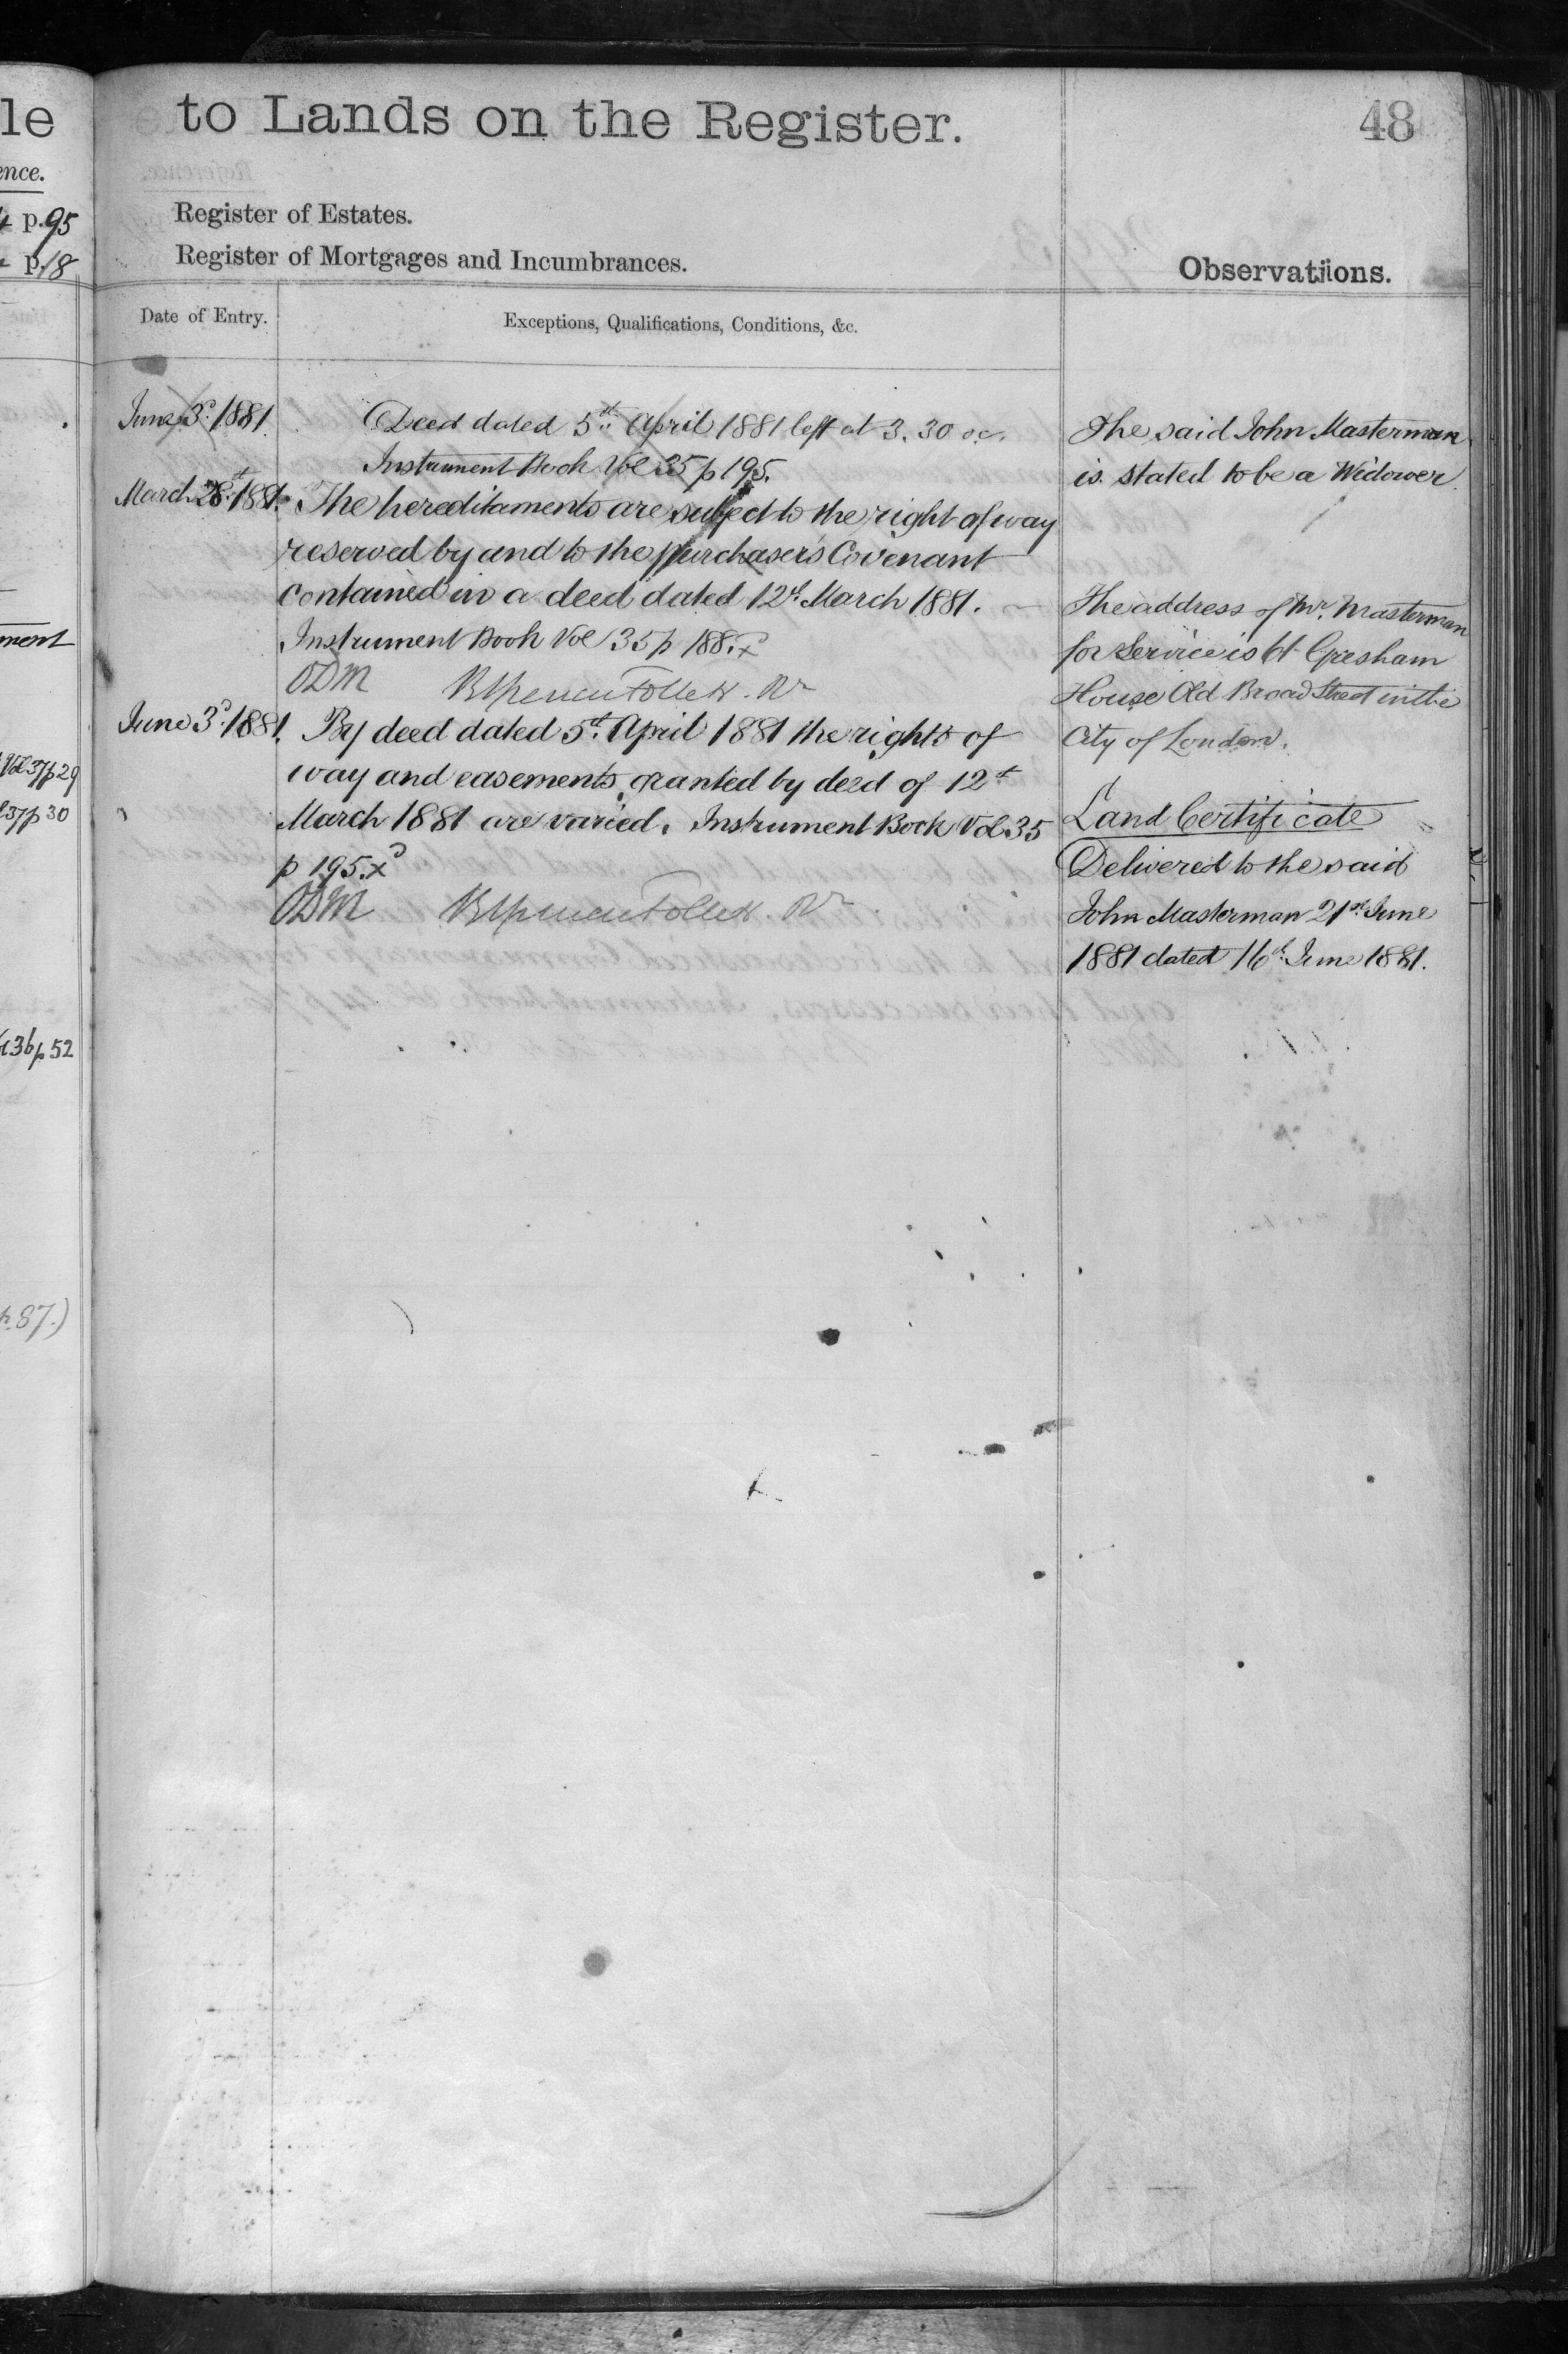 le
ence.
p. 95
p. 18
ment
Vol 37 p 29
37 p 30
36 p 52
p. 87.)
to Lands on the Register.
48
Register of Estates.
Register of Mortgages and Incumbrances.
Observations.
Date of Entry.
Exceptions, Qualifications, Conditions, &c.
June 3d. 1881.
Deed dated 5th. April 1881 left at 3.30 oc.
Instrument Book Vol 35 p 195.
March 28th 1881.
The hereditaments are subject to the right of way
reserved by and to the purchaser's Covenant
contained in a deed dated 12th March 1881.
Instrument Book Vol 35 p 188. x
ODM Follett. Rr
June 3d. 1881.
By deed dated 5th April 1881 the rights of
way and easements granted by deed of 12th
March 1881 are varied. Instrument Book Vol. 35
p 195. x
ODM Follett. Rr
The said John Masterman
is stated to be a Widower.
The address of Mr. Masterman
for Service is 61 Gresham
House Old Broad Street in the
City of London.
Land Certificate
Delivered to the said
John Masterman 21st June
1881 dated 16th June 1881.